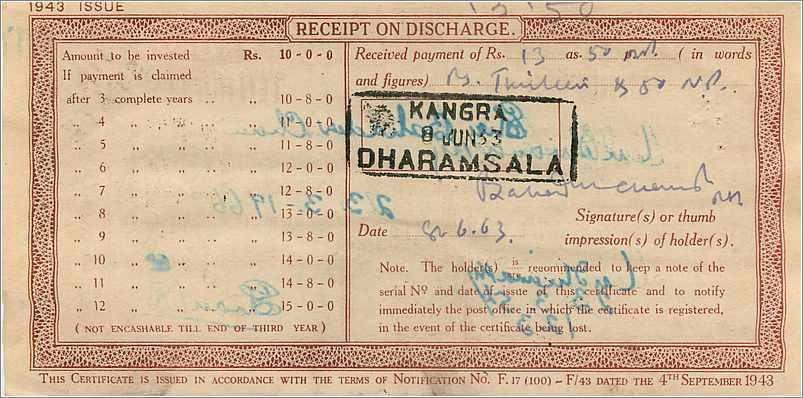 1943 ISSUE
13 50
RECEIPT ON DISCHARGE.
Amount to be invested Rs. 10-0-0
If payment is claimed
after 3 complete years .. .. 10-8-0
" 4 " " .. 11-0-0
" 5 " " .. 11-8-0
" 6 " " .. 12-0-0
" 7 " " .. 12-8-0
" 8 " " .. 13-0-0
" 9 " " .. 13-8-0
" 10 " " .. 14-0-0
" 11 " " .. 14-8-0
" 12 " " .. 15-0-0
(NOT ENCASHABLE TILL END OF THIRD YEAR)
Received payment of Rs. 13 as. 50 NP. (in words
and figures) Rs. Thirteen & 50 NP.
KANGRA
8 JUN 63
DHARAMSALA
23.3.1966
Date 8.6.63.
Signature(s) or thumb
impression(s) of holder(s).
Note. The holder(s) is/are recommended to keep a note of the
serial Nº and date of issue of this certificate and to notify
immediately the post office in which the certificate is registered,
in the event of the certificate being lost.
THIS CERTIFICATE IS ISSUED IN ACCORDANCE WITH THE TERMS OF NOTIFICATION No. F.17 (100) – F/43 DATED THE 4TH SEPTEMBER 1943